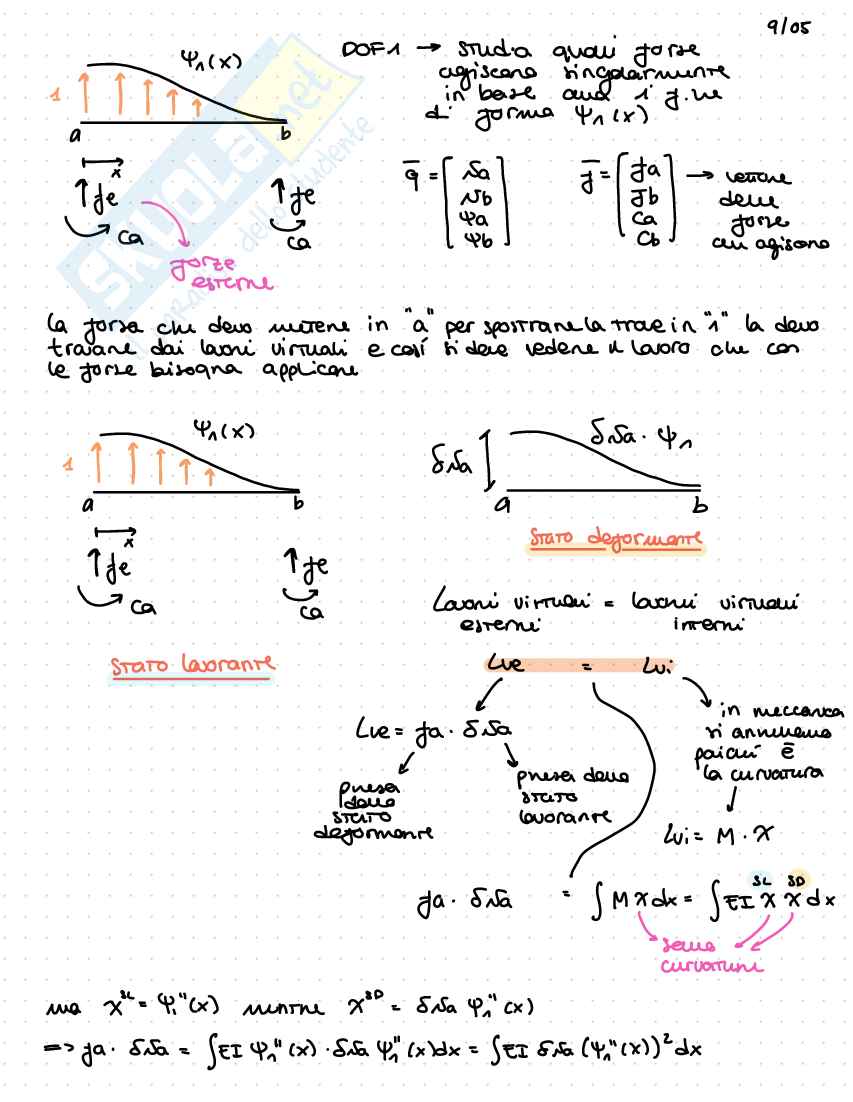 9/05
Ψ₁(x)
DOF1 → studia quali forze
agiscano singolarmente
in base alla 1ª f.ne
di forma Ψ₁(x)
1
a
b
x
↑fe
↑fe
ca
ca
forze
esterne
q̅ = [va vb φa φb]
f̅ = [fa fb ca cb] → vettore
delle
forze
cui agiscono
SKUOLA.net
la forza che devo mettere in "a" per spostare la trave in "1" la devo
trovare dai lavori virtuali e così si deve vedere il lavoro che con
le forze bisogna applicare
Ψ₁(x)
1
a
b
x
↑fe
↑fe
ca
ca
stato lavorante
δva
δva · Ψ₁
a
b
stato deformante
Lavori virtuali = lavori virtuali
esterni interni
Lve = Lvi
Lve = fa · δva
presa dallo
stato
deformante
presa dallo
stato
lavorante
in meccanica
poiché è
la curvatura
Lvi = M · χ
fa · δva = ∫ M χ dx = ∫ EI χ^SL χ^SD dx
sono
curvature
ma χ^SL = Ψ₁''(x) mentre χ^SD = δva Ψ₁''(x)
=> fa · δva = ∫EI Ψ₁''(x) · δva Ψ₁''(x)dx = ∫EI δva (Ψ₁''(x))² dx